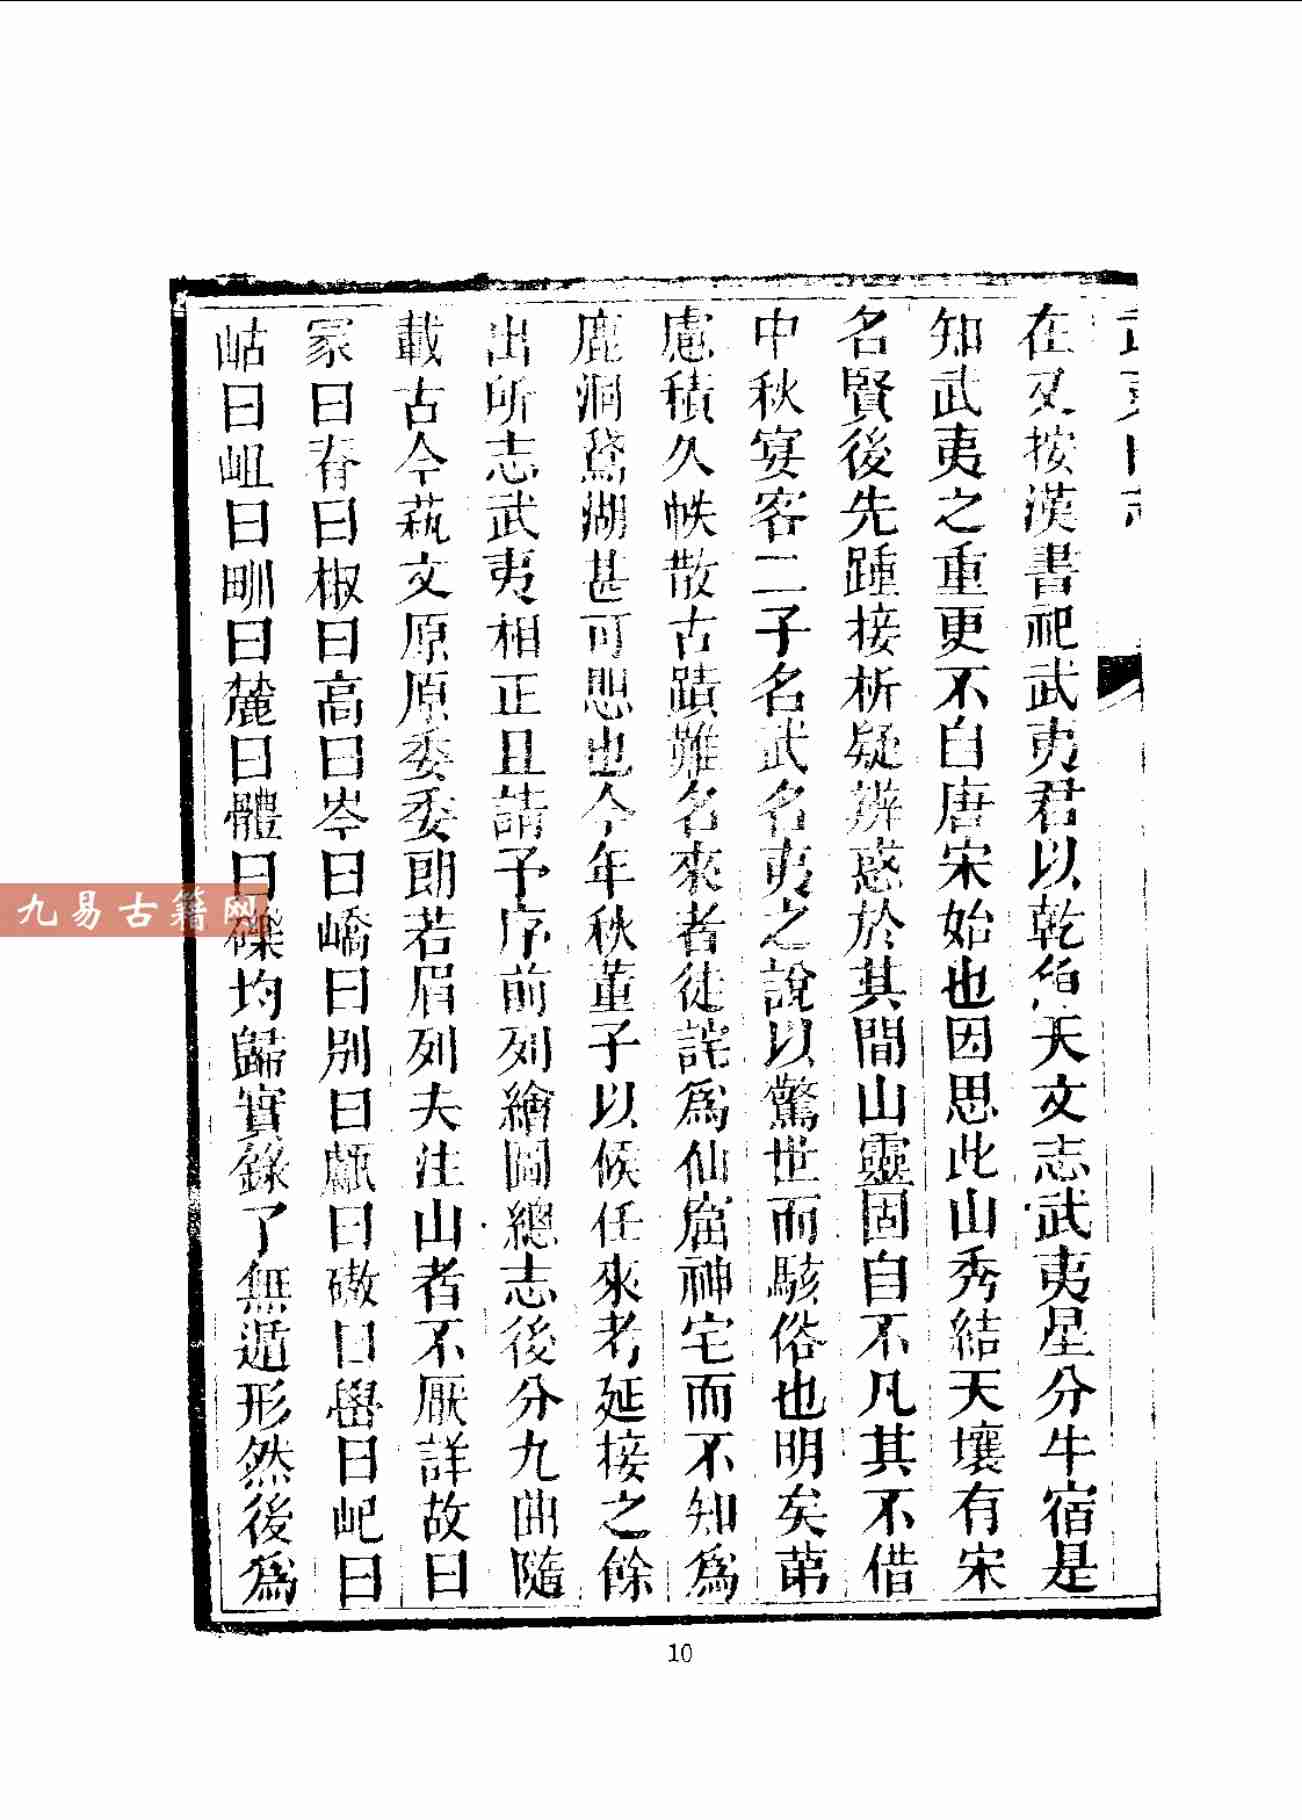 在又按漢書祀武夷君以乾魚天文志武夷星分牛宿是
知武夷之重更不自唐宋始也因思此山秀結天壤有宋
名賢後先踵接析疑辨惑於其間山靈固自不凡其不借
中秋宴客二子名武名夷之說以驚世而駭俗也明矣苐
慮積久帙散古蹟難名來者徒詫爲仙窟神宅而不知爲
鹿洞鵞湖甚可慨也今年秋董子以候任來考延接之餘
出所志武夷相正且請予序前列繪圖總志後分九曲隨
載古今蓺文原原委委朗若眉列夫注山者不厭詳故曰
冢曰脊曰椒曰高曰岑曰嶠曰別曰甗曰磝曰礐曰屺曰
岵曰岨曰甽曰麓曰體曰礫均歸實錄了無遁形然後爲
九易古籍网
10